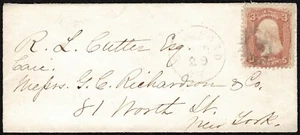 R. L. Cutter Esq.
Care
Messrs. G. C. Richardson & Co.
81 Worth St.
New York.
3 3
29